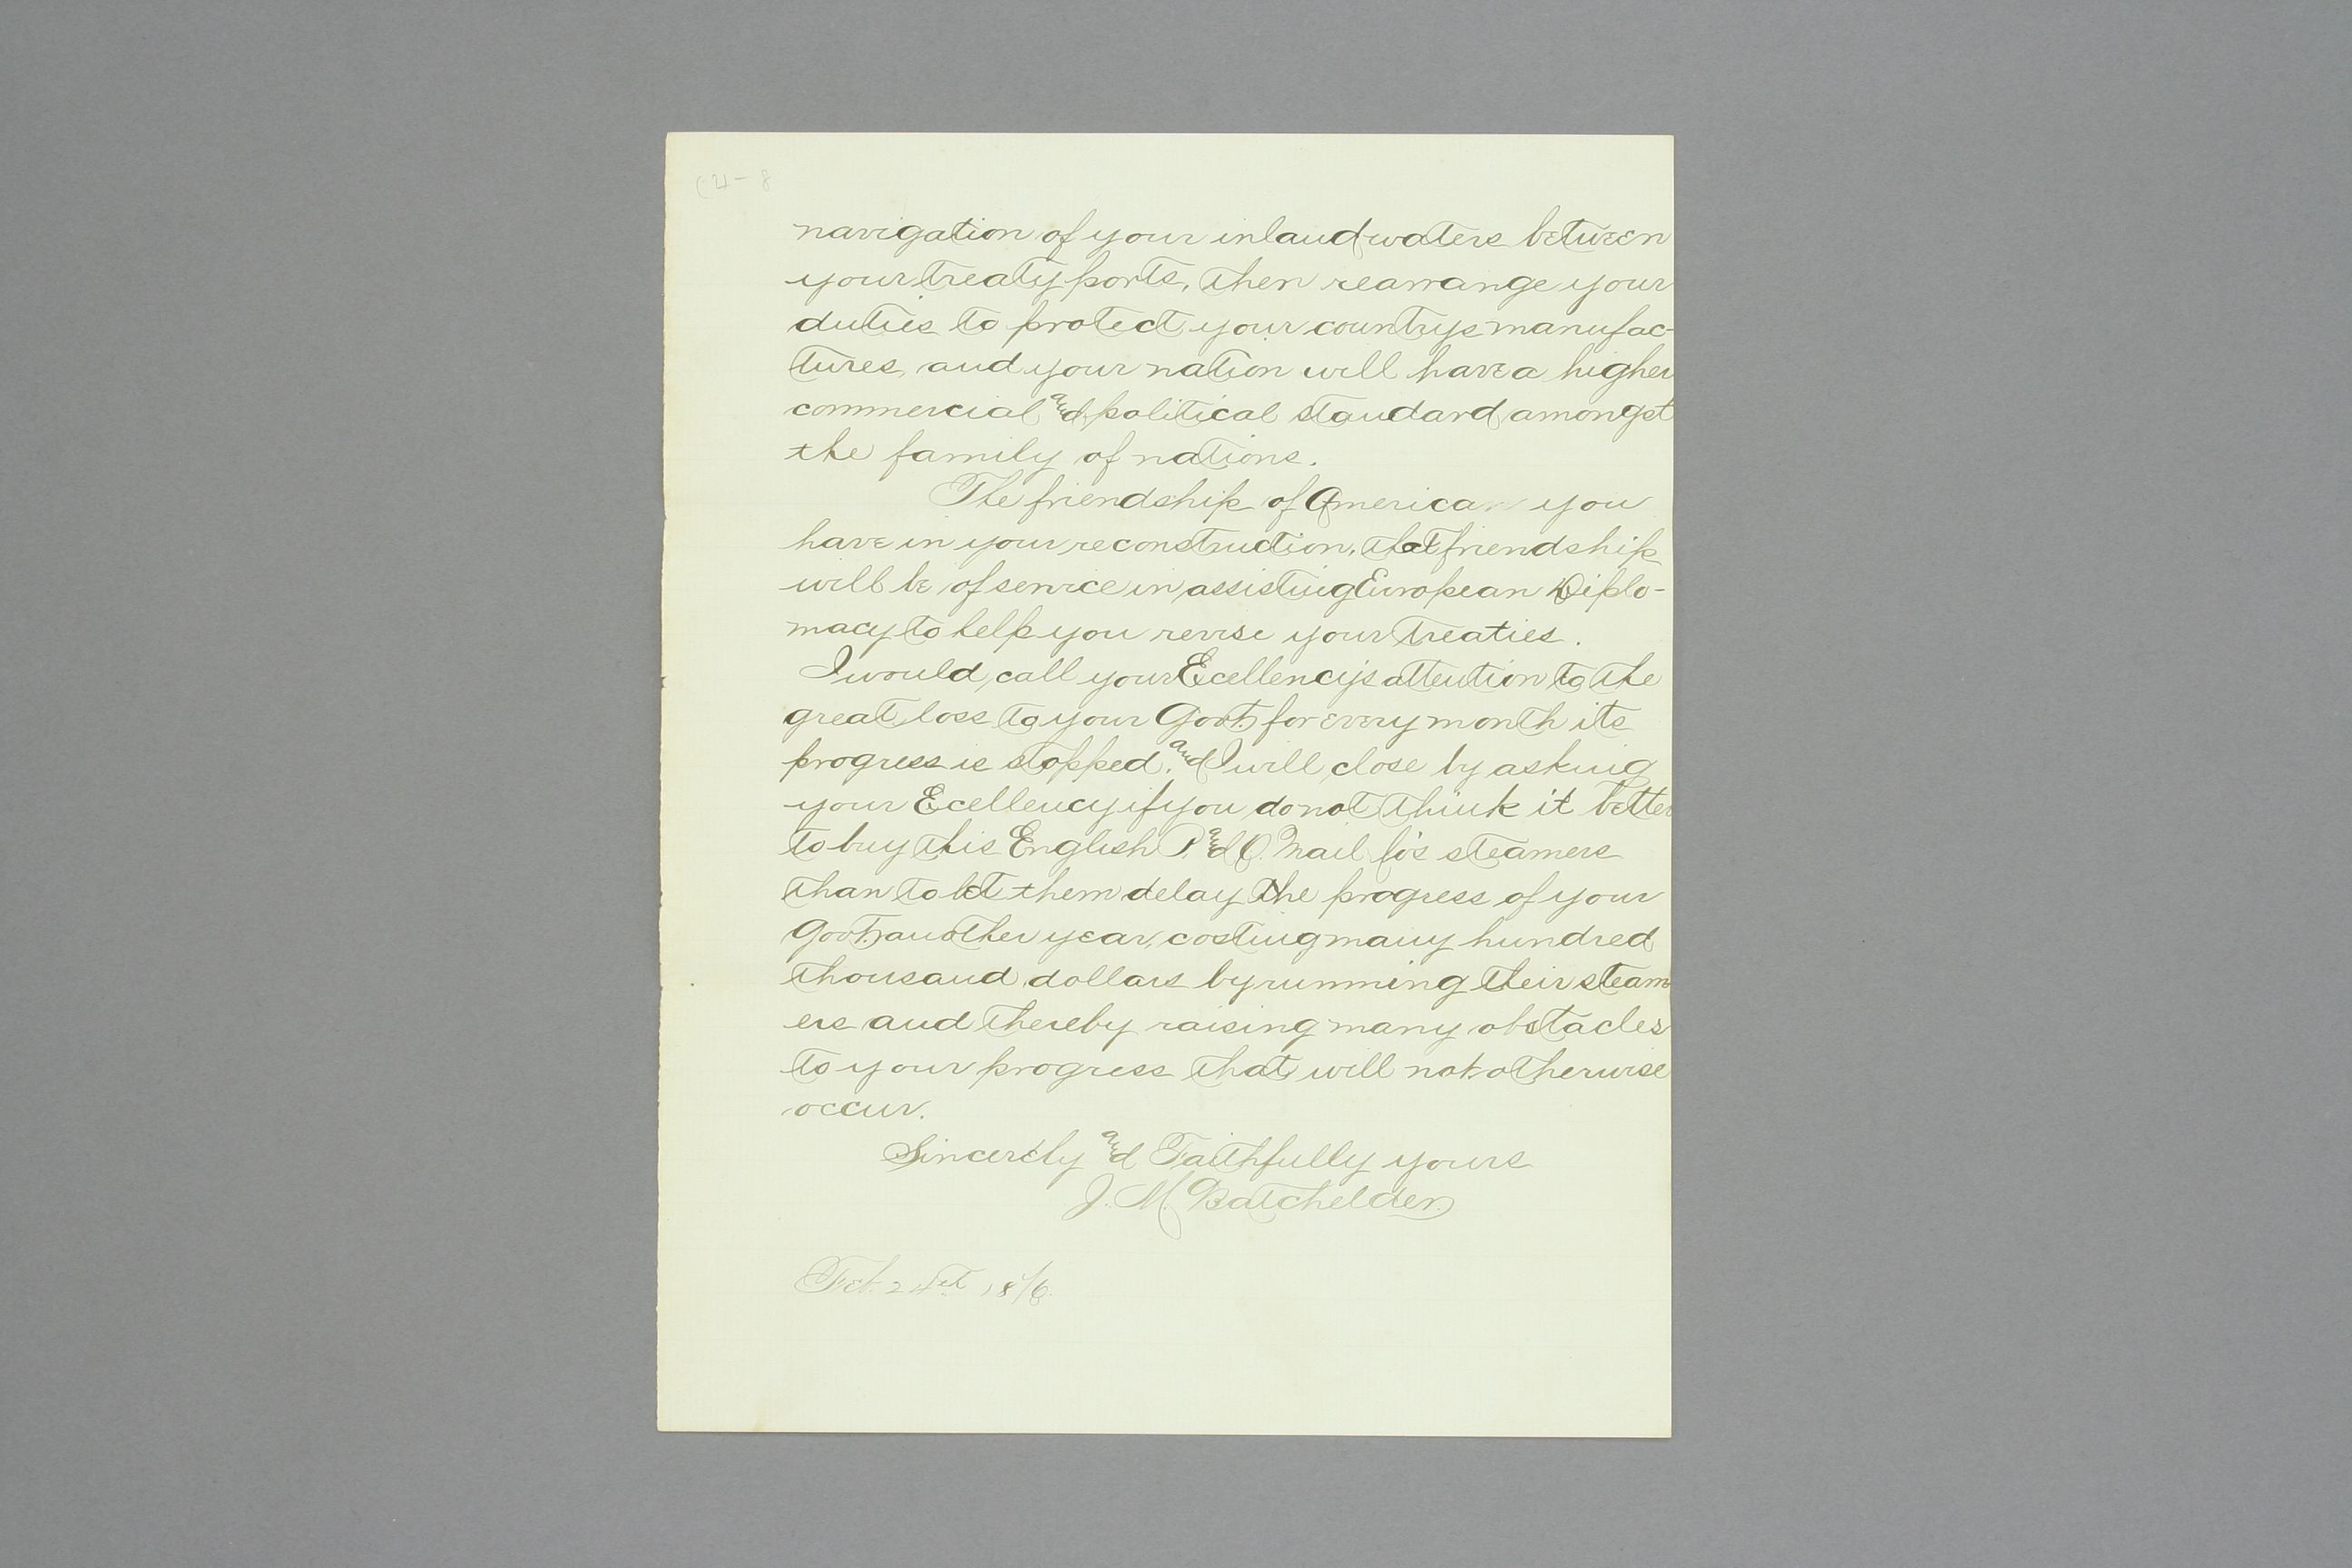 navigation of your inland waters between
your treaty ports, then rearrange your
duties to protect your countrys manufac-
tures, and your nation will have a higher
commercial and political standard amongst
the family of nations.
The friendship of America you
have in your reconstruction, that friendship
will be of service in assisting European Diplo-
macy to help you revise your treaties.
I would call your Ecellency's attention to the
great loss to your Govt. for every month its
progress is stopped. and I will close by asking
your Ecellency if you do not think it better
to buy this English P. and O. Mail Co's steamers
than to let them delay the progress of your
Govt. another year, costing many hundred
thousand dollars by running their steam
ers and thereby raising many obstacles
to your progress that will not otherwise
occur.
Sincerely and Faithfully yours
J. M. Batchelder.
Feb. 24th 1876.